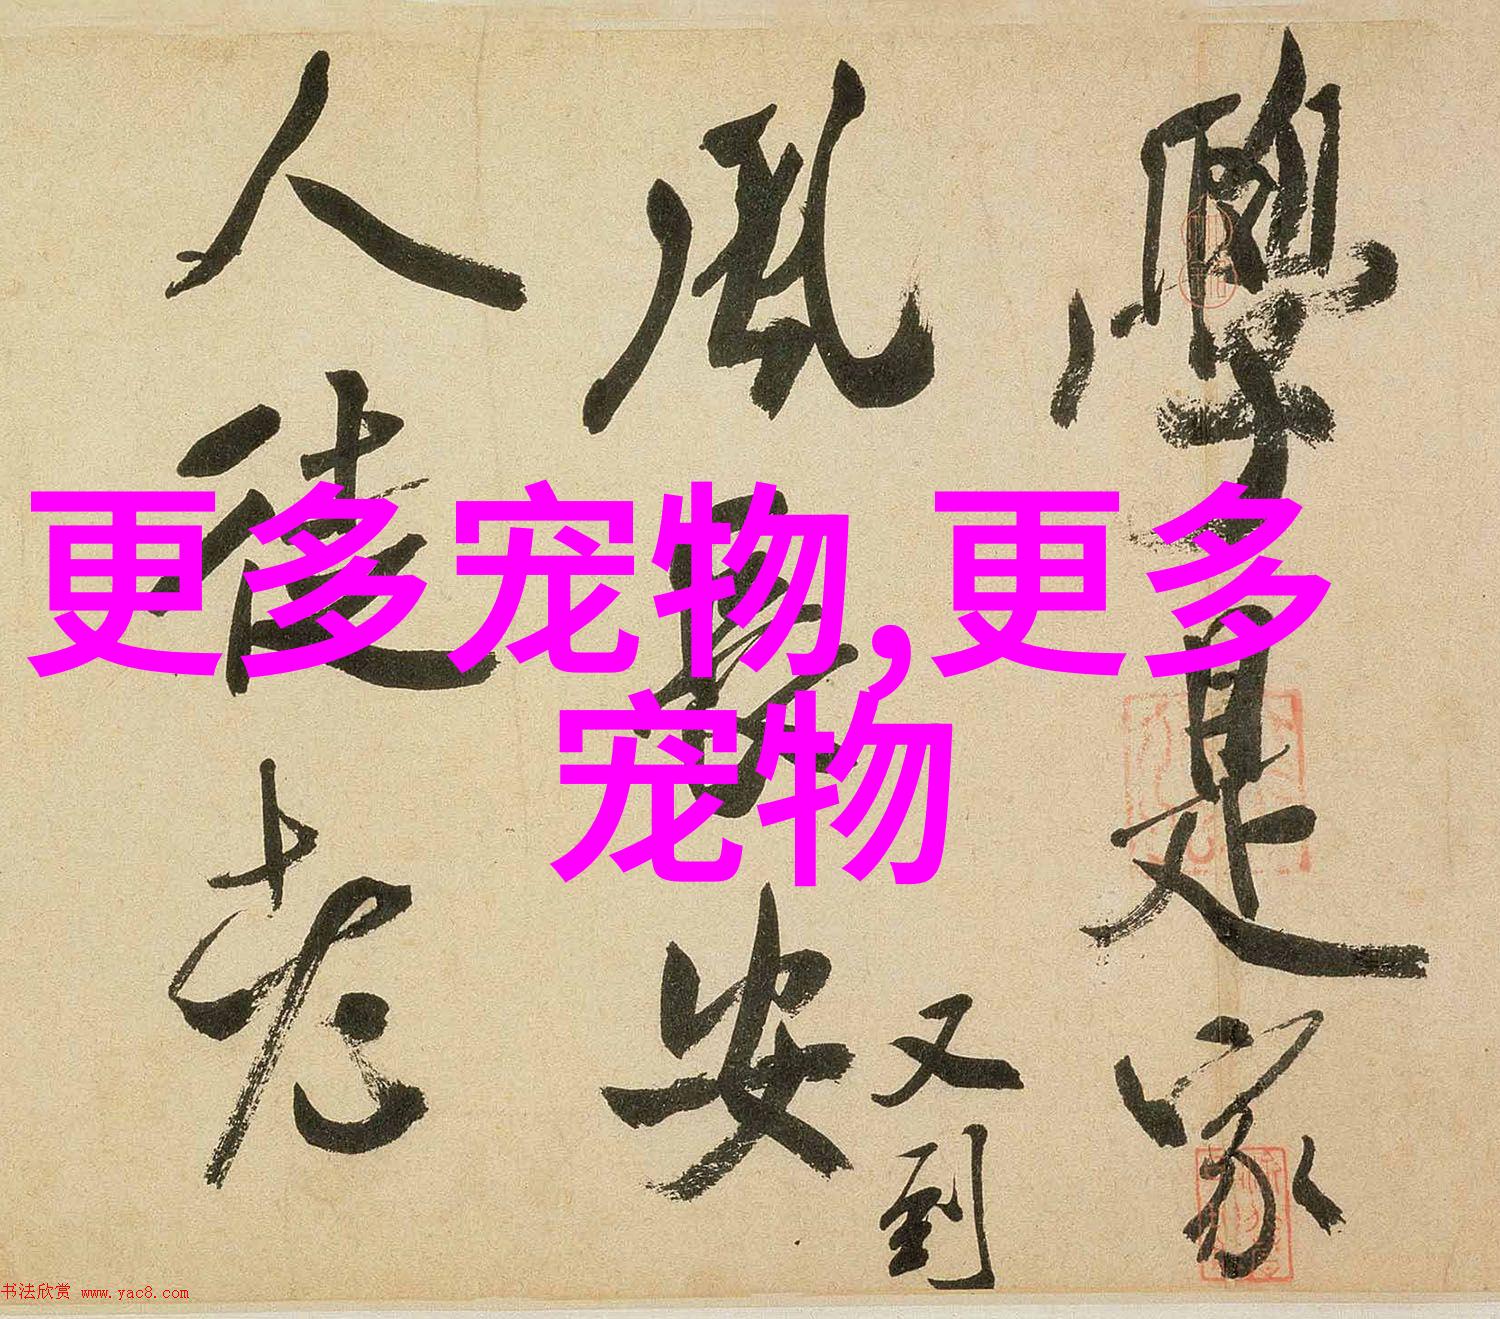 学是家
风最安
又到
人徒老
更多宠物,更多
宠物
书法欣赏 www.yac8.com